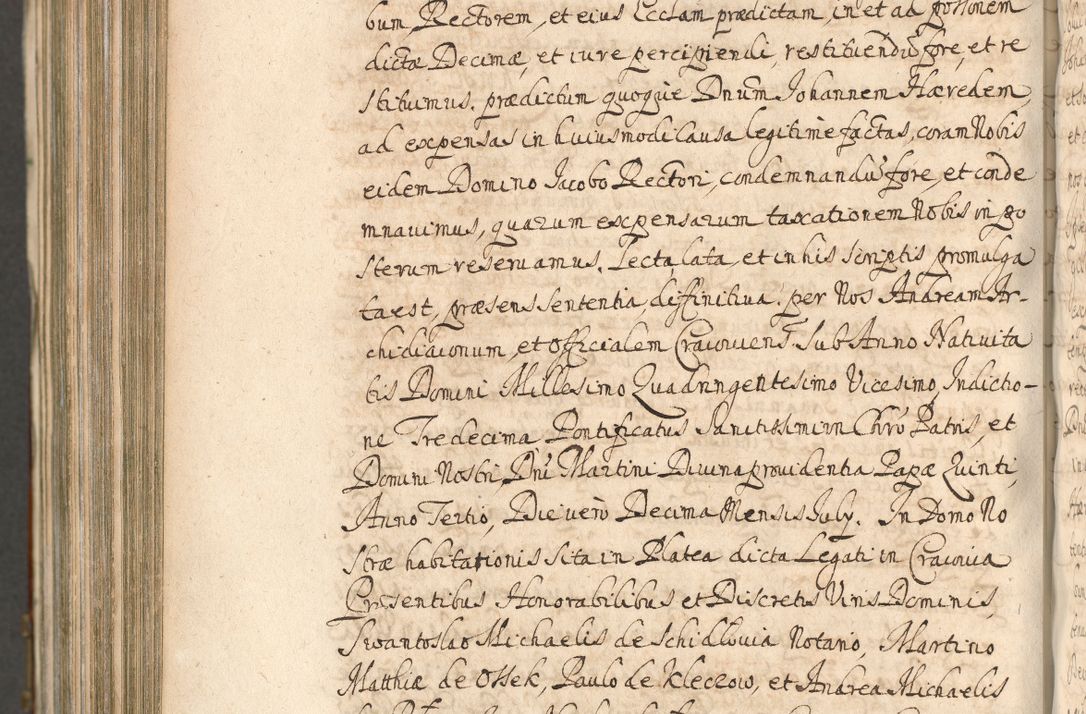 bum Rectorem, et eius Ecclam prædictam, in et ad possonem
dictæ Decimæ, et iure percipiendi, restituendũ fore, et re
stituimus. prædictum quoque Dnum Johannem Hæredem
ad expensas in huiusmodi causa legitime factas, coram Nobis
eidem Domino Jacobo Rectori, condemnandũ fore, et conde
mnauimus, quarum expensarum taxationem Nobis in po
sterum reseruamus. Lecta, lata, et in his scriptis promulga
ta est, præsens sententia, diffinitiua. per Nos Andream Ar-
chidiaconum, et Officialem Cracouiens Sub Anno Natiuita
tis Domini Millesimo Quadringentesimo Vicesimo, Indictio-
ne Tredecima Pontificatus Sanctissimi in Chro Patris, et
Domini Nostri, Dni Martini Diuina prouidentia Papæ Quinti,
Anno Tertio, Die vero Decima Mensis July. In Domo No
stræ habitationis sita in Platea dicta Legati in Cracouia
Præsentibus Honorabilibus et Discretis Viris Dominis,
Swantoslao Michaelis de Schidlouia Notario, Martino
Matthiæ de Ossek, Paulo de Kleczow, et Andrea Michaelis